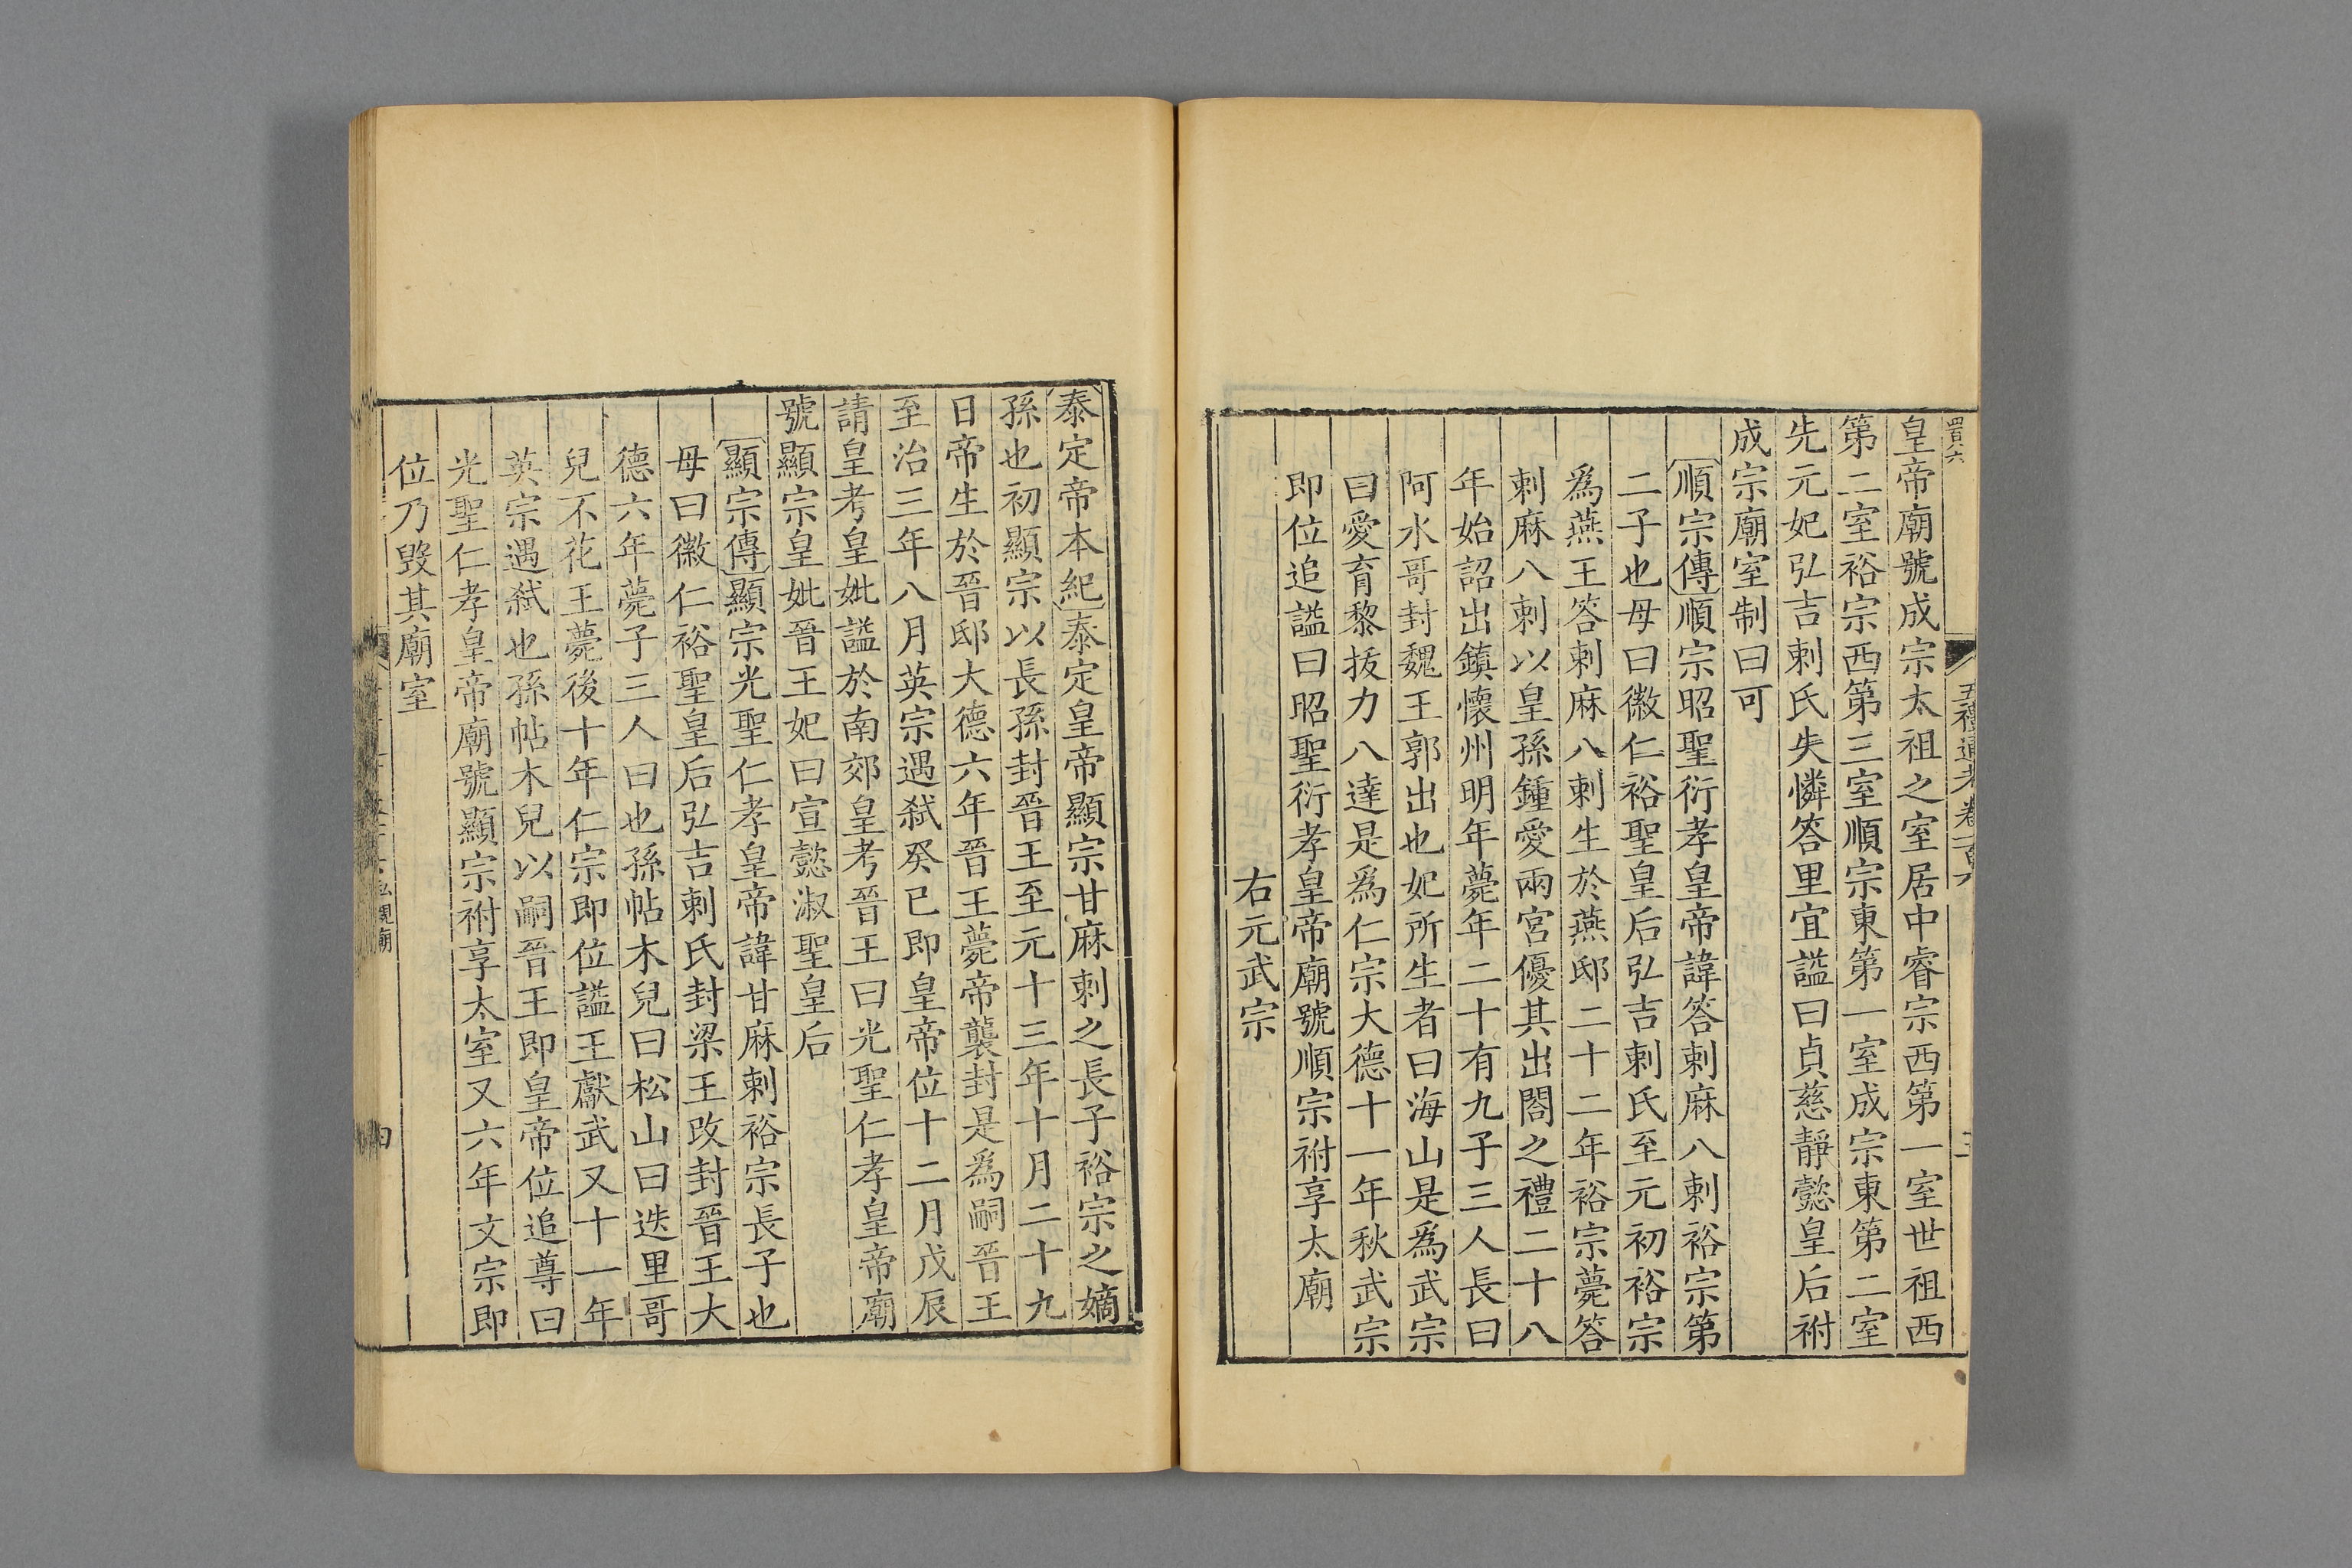 四百六
五禮通考卷一百六
三
皇帝廟號成宗太祖之室居中睿宗西第一室世祖西
第二室裕宗西第三室順宗東第一室成宗東第二室
先元妃弘吉剌氏失憐答里宜謚曰貞慈靜懿皇后祔
成宗廟室制曰可
順宗傳順宗昭聖衍孝皇帝諱答剌麻八剌裕宗第
二子也母曰徽仁裕聖皇后弘吉剌氏至元初裕宗
爲燕王答剌麻八剌生於燕邸二十二年裕宗薨答
剌麻八剌以皇孫鍾愛兩宮優其出閤之禮二十八
年始詔出鎮懷州明年薨年二十有九子三人長曰
阿水哥封魏王郭出也妃所生者曰海山是爲武宗
曰愛育黎拔力八達是爲仁宗大德十一年秋武宗
即位追謚曰昭聖衍孝皇帝廟號順宗祔享太廟
右元武宗
泰定帝本紀泰定皇帝顯宗甘麻剌之長子裕宗之嫡
孫也初顯宗以長孫封晉王至元十三年十月二十九
日帝生於晉邸大德六年晉王薨帝襲封是爲嗣晉王
至治三年八月英宗遇弑癸巳即皇帝位十二月戊辰
請皇考皇妣謚於南郊皇考晉王曰光聖仁孝皇帝廟
號顯宗皇妣晉王妃曰宣懿淑聖皇后
顯宗傳顯宗光聖仁孝皇帝諱甘麻剌裕宗長子也
母曰徽仁裕聖皇后弘吉剌氏封梁王改封晉王大
德六年薨子三人曰也孫帖木兒曰松山曰迭里哥
兒不花王薨後十年仁宗即位謚王獻武又十一年
英宗遇弑也孫帖木兒以嗣晉王即皇帝位追尊曰
光聖仁孝皇帝廟號顯宗祔享太室又六年文宗即
位乃毀其廟室
私親廟
四